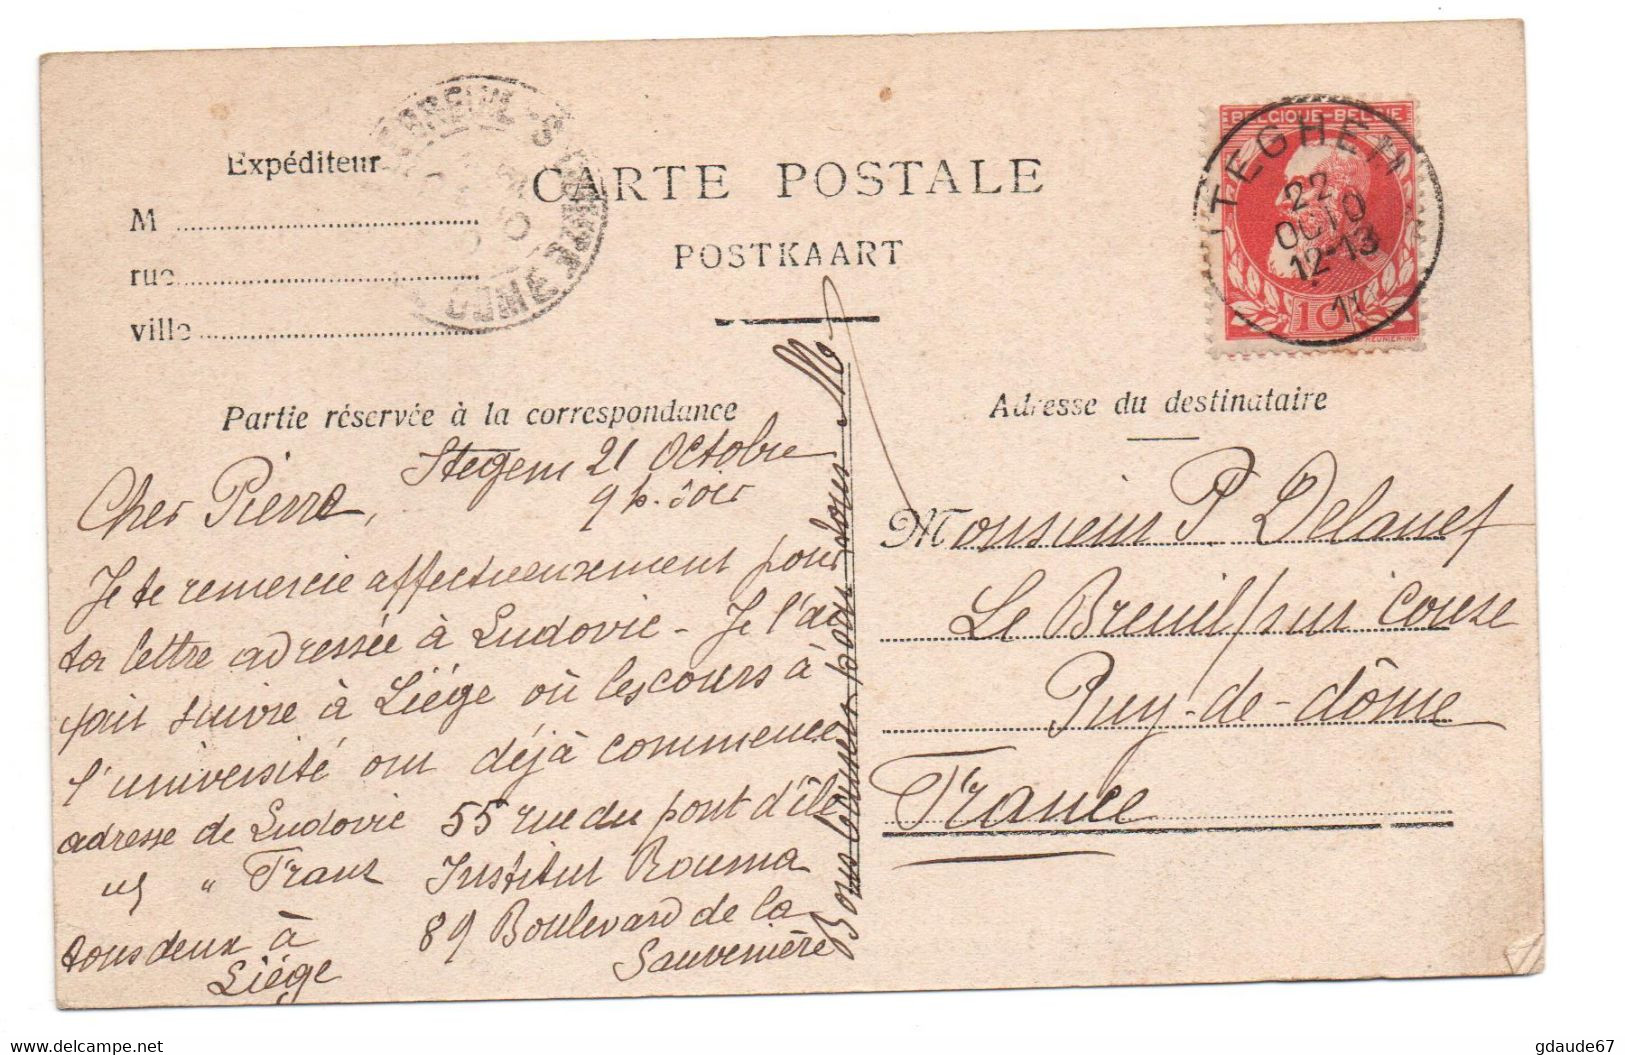 Expéditeur
M
rue
ville
CARTE POSTALE
POSTKAART
BELGIQUE-BELGIË
ITEGHEM
22
OCTO
12-13
11
10
Partie réservée à la correspondance
Adresse du destinataire
Itegem 21 Octobre
9 h. soir
Cher Pierre,
Je te remercie affectueusement pour
ta lettre adressée à Ludovic - Je l'ai
fait suivre à Liége où les cours à
l'université ont déjà commencé
adresse de Ludovic 55 rue du pont d'île
" Franz Institut Rouma
89 Boulevard de la
Sauvenière
tous deux à
Liége
Monsieur P. Delanef
Le Breuil/sur Couze
Puy-de-dôme
France
Bons pour vous
gdaude67